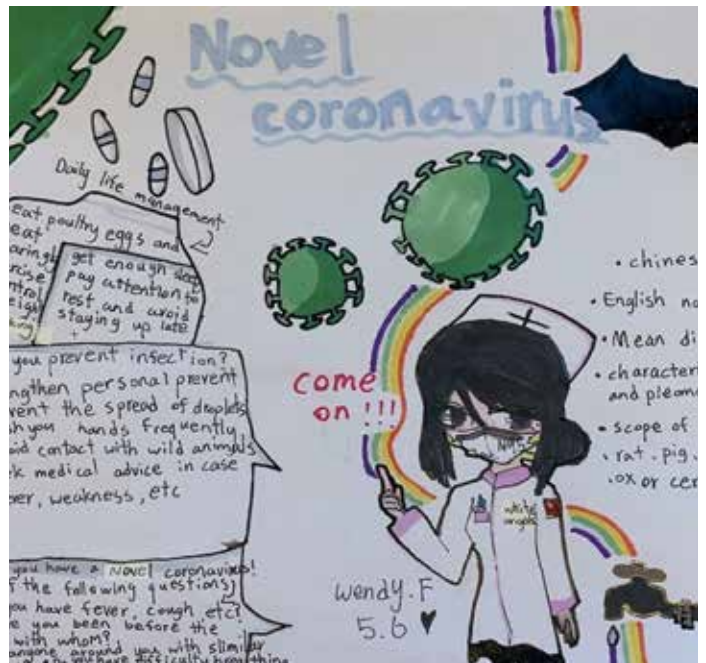 Novel
coronavirus
Daily life management
eat poultry eggs and
eat
get enough sleep
pay attention to
rest and avoid
staying up late
you prevent infection?
ngthen personal prevent
vent the spread of droplets
h you hands frequently
oid contact with wild animals
k medical advice in case
ver, weakness, etc
you have a Novel coronavirus!
the following questions;
ou have fever, cough etc?
e you been before the
with whom?
anyone around you with slimilar
have difficulty breathing
come
on !!!
white
angels
wendy.F
5.6
• chines
• English na
• Mean di
• character
and pleom
• scope of
• rat. pig.
.ox or cer